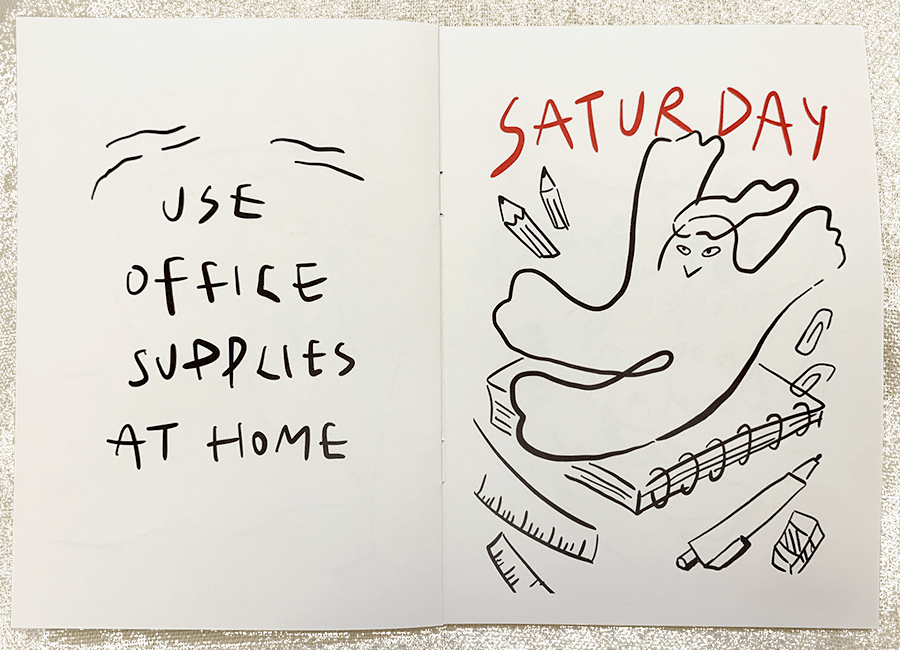 USE
OFFICE
SUPPLIES
AT HOME
SATURDAY